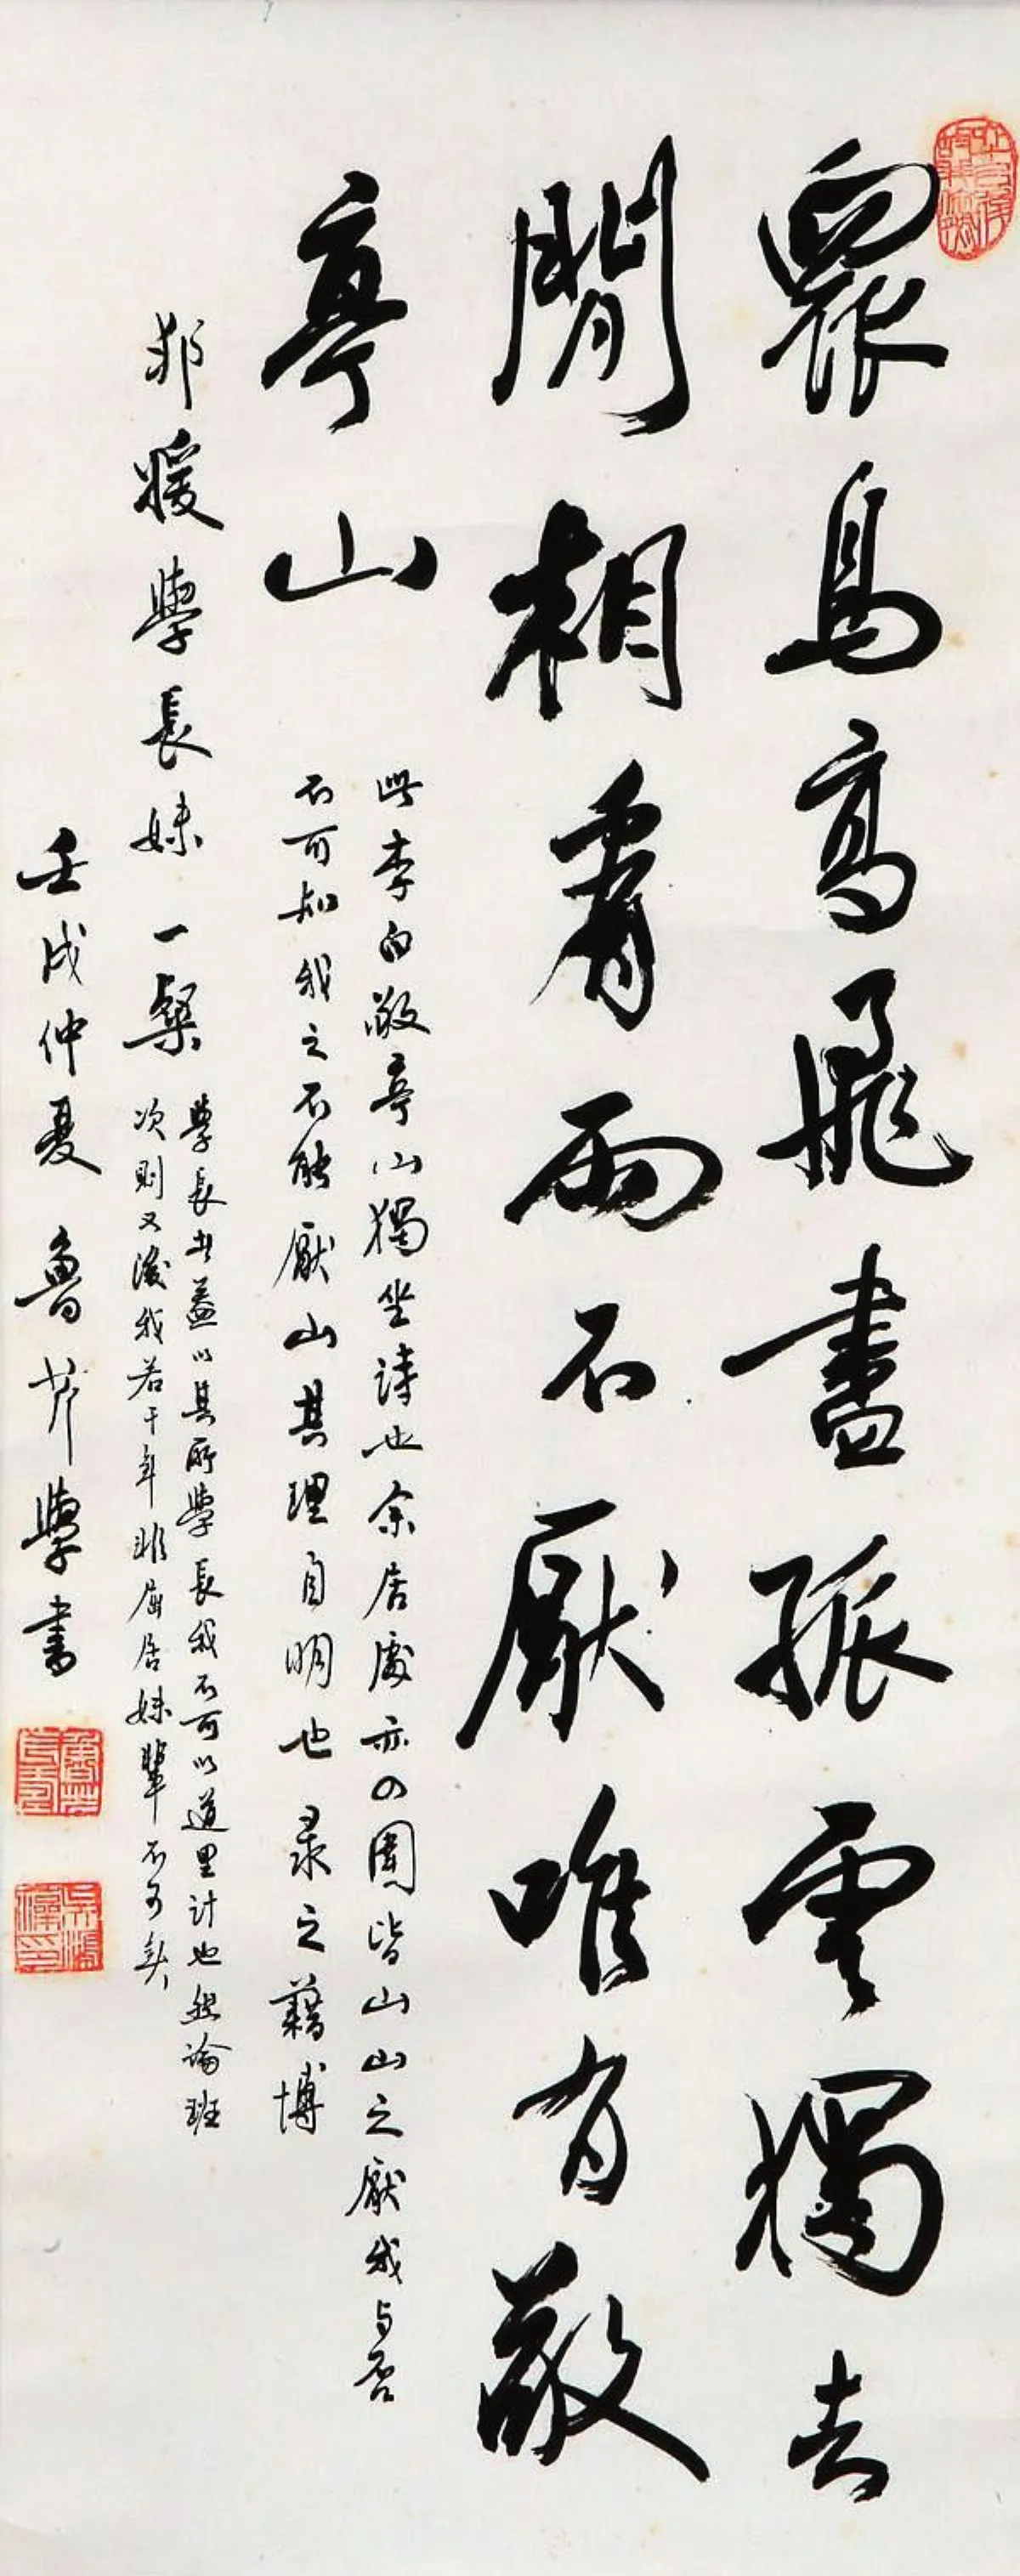 眾鳥高飛盡孤雲獨去
閒相看兩不厭唯有敬
亭山
此李白敬亭山獨坐詩也余居處亦四圍皆山山之厭我与否
不可知我之不能厭山其理自明也录之藉博
媛學長妹一粲
學長者蓋以其所學長我不可以道里計也但論班
次則又後我若干年非屈居妹輩不可矣
壬戌仲夏魯岑學書